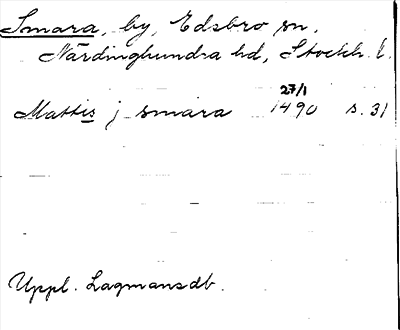 Smara, by, Edsbro sn,
Närdinghundra hd, Stockh. l.
27/1
Mattis j smara 1490 s. 31
Uppl. Lagmansdb.